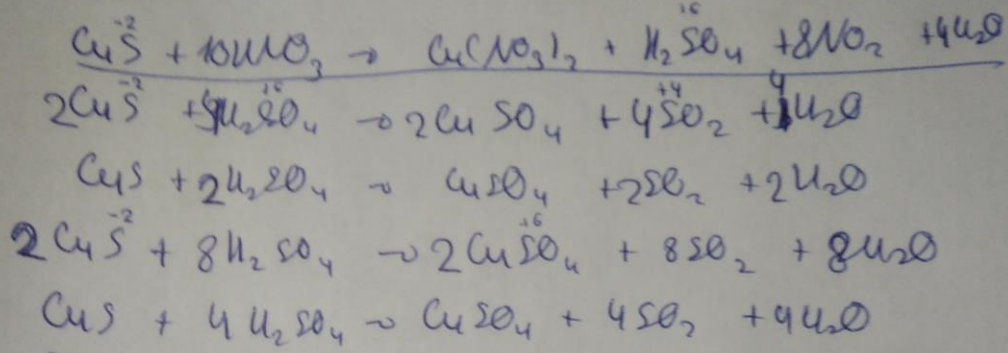 CuS⁻² + 10HNO₃ → Cu(NO₃)₂ + H₂S⁺⁶O₄ + 8NO₂ + 4H₂O
2CuS⁻² + H₂S⁺⁶O₄ → 2CuSO₄ + 4S⁺⁴O₂ + 4H₂O
CuS + 2H₂SO₄ → CuSO₄ + 2SO₂ + 2H₂O
2CuS⁻² + 8H₂SO₄ → 2CuS⁺⁶O₄ + 8SO₂ + 8H₂O
CuS + 4H₂SO₄ → CuSO₄ + 4SO₂ + 4H₂O